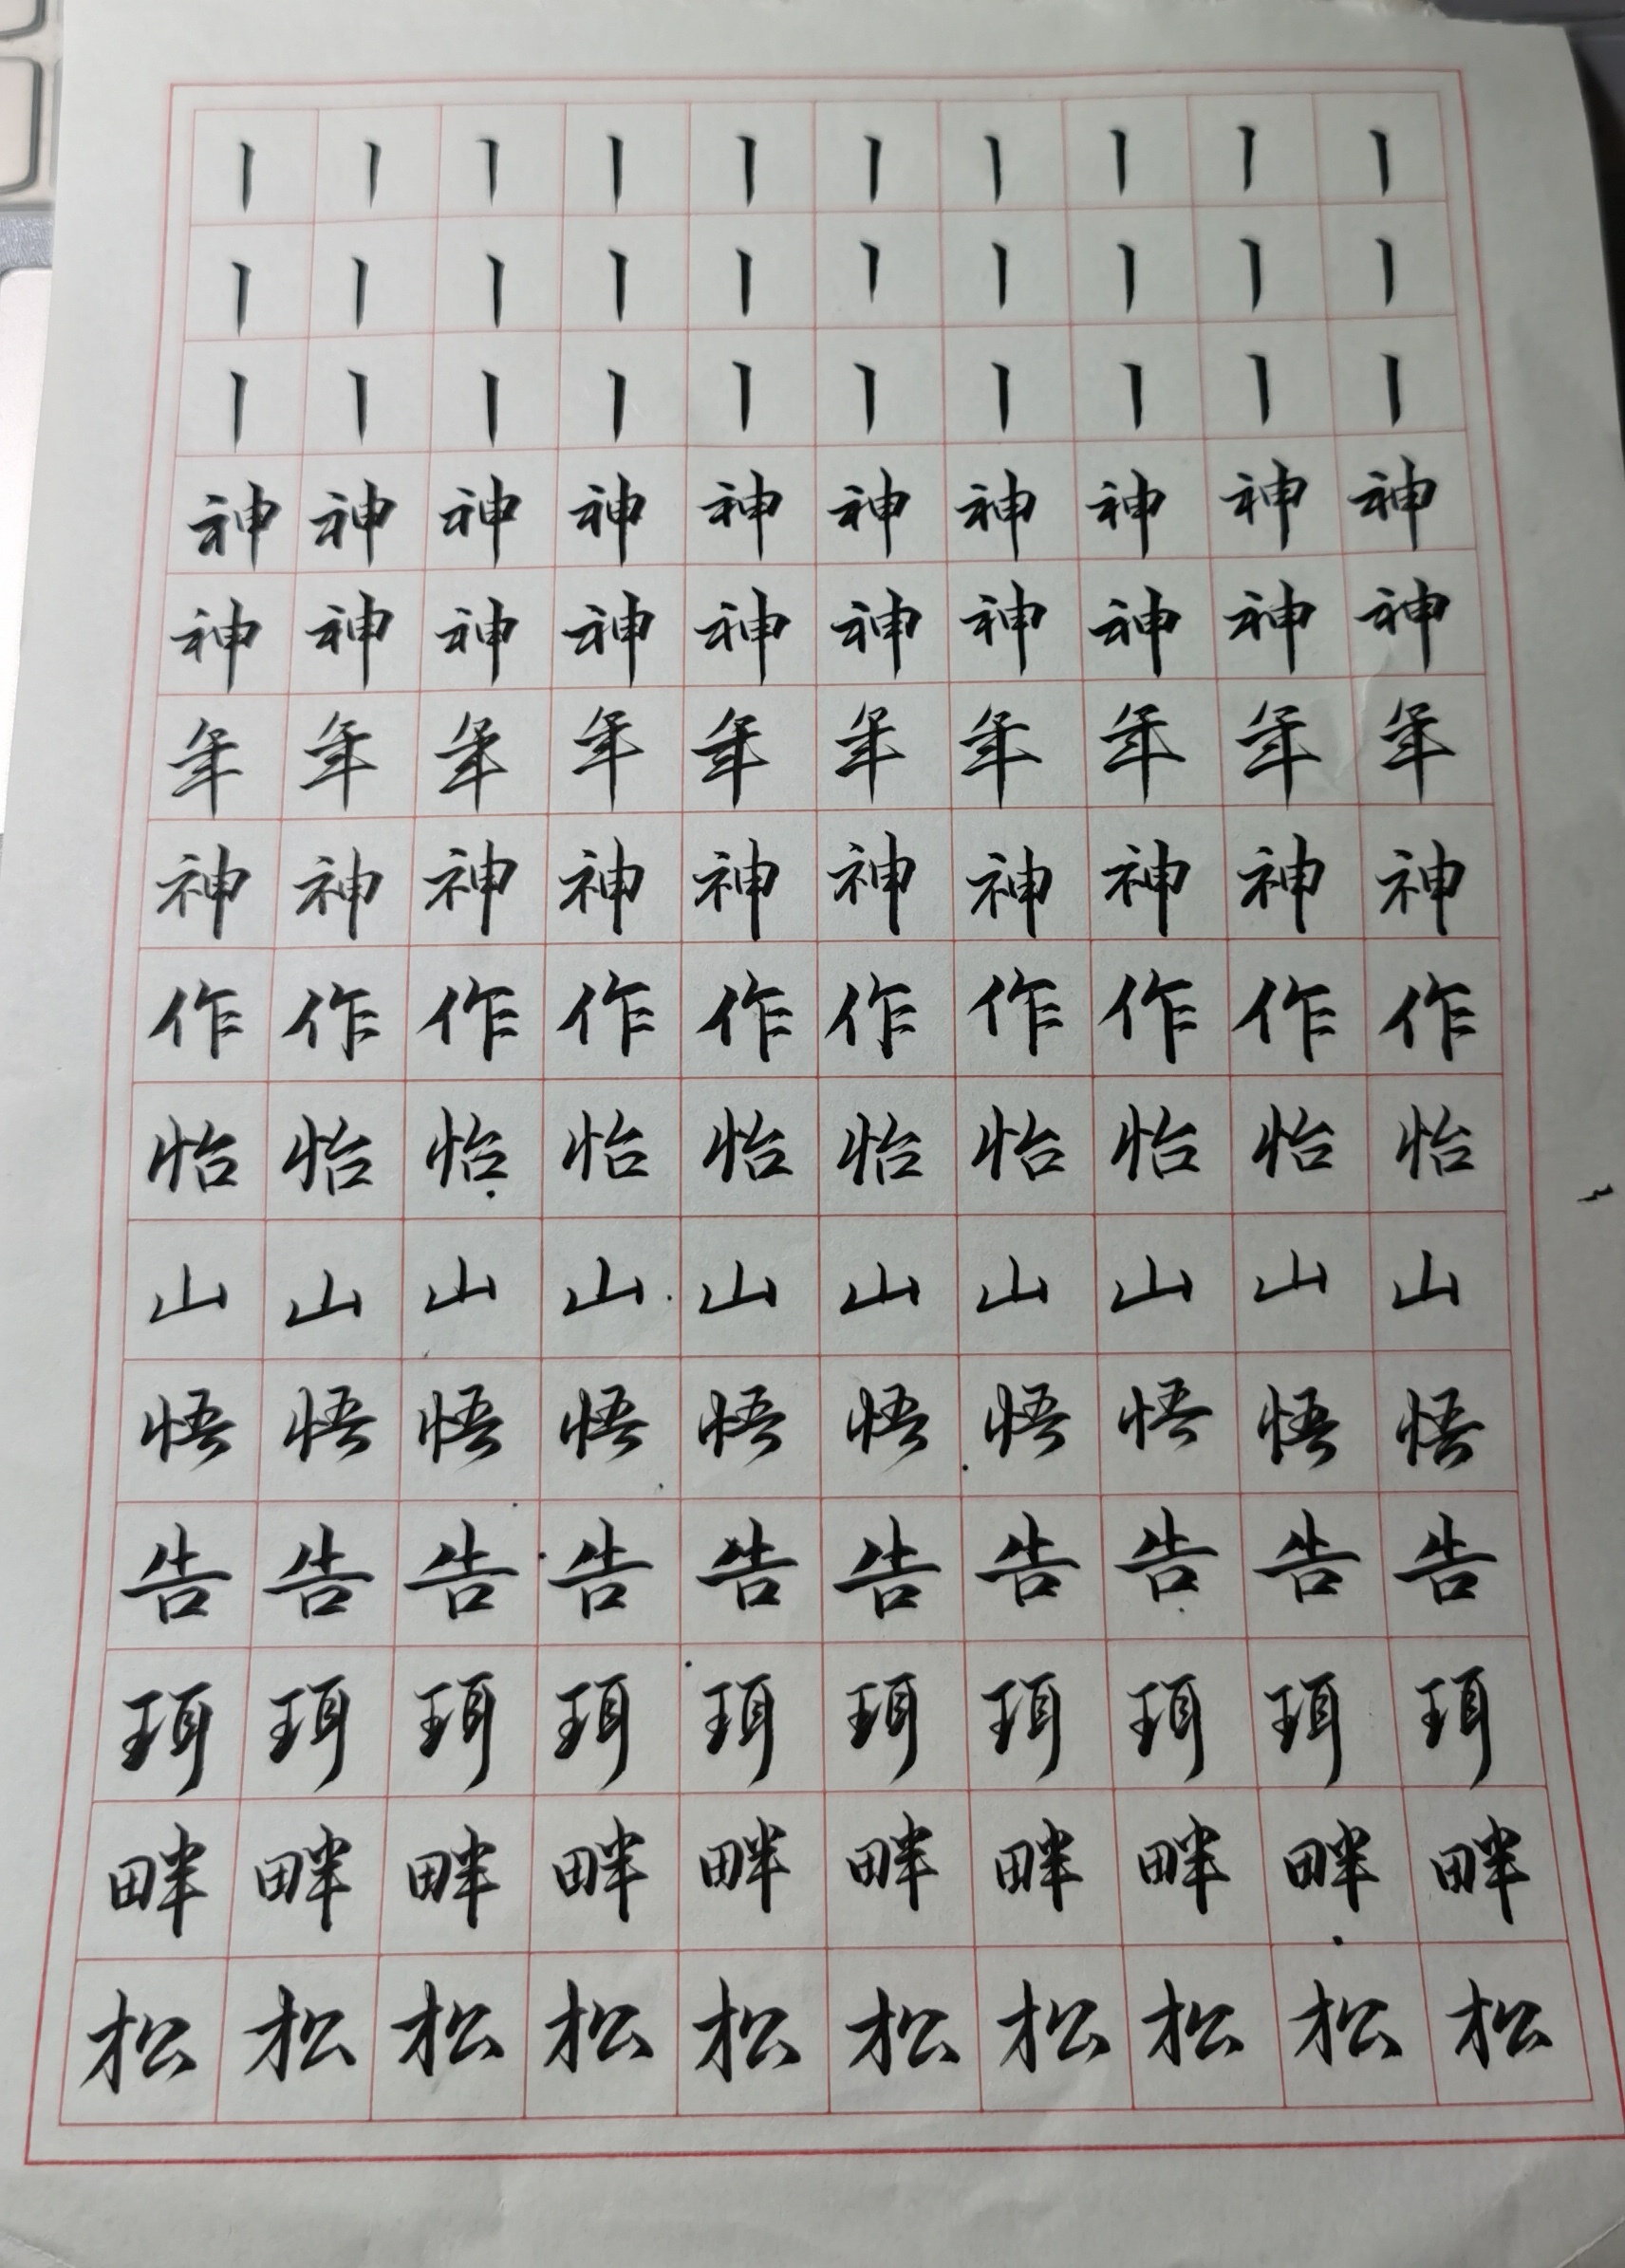 丨丨丨丨丨丨丨丨丨丨
丨丨丨丨丨丨丨丨丨丨
丨丨丨丨丨丨丨丨丨丨
神神神神神神神神神神
神神神神神神神神神神
年年年年年年年年年年
神神神神神神神神神神
作作作作作作作作作作
怡怡怡怡怡怡怡怡怡怡
山山山山山山山山山山
悟悟悟悟悟悟悟悟悟悟
告告告告告告告告告告
珥珥珥珥珥珥珥珥珥珥
畔畔畔畔畔畔畔畔畔畔
松松松松松松松松松松